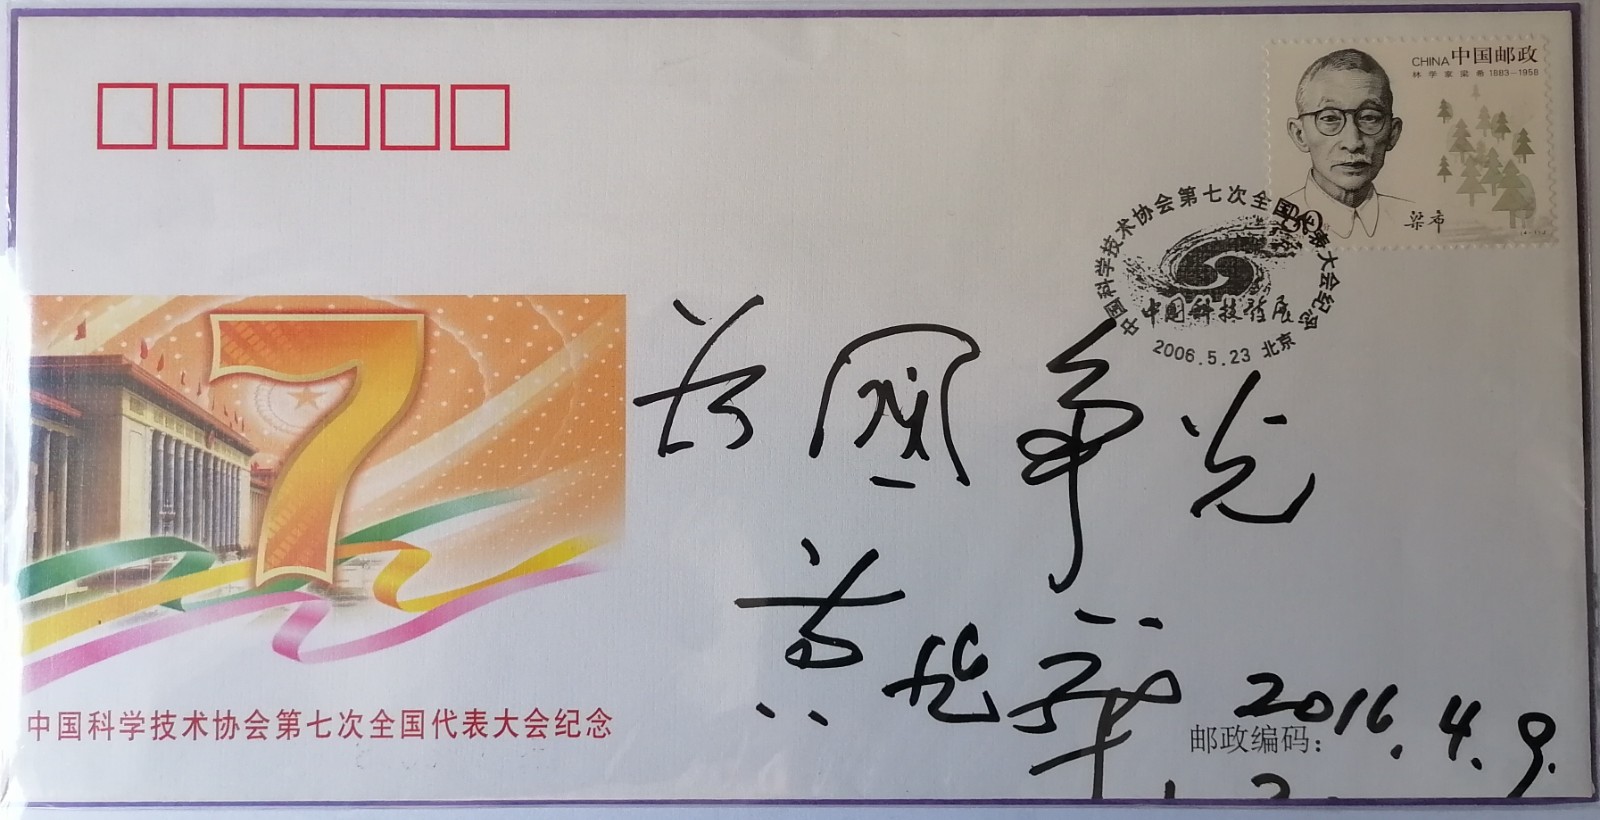 CHINA 中国邮政
林学家梁希 1883—1958
梁希
中国科学技术协会第七次全国代表大会纪念
中国科技发展
2006.5.23 北京
为国争光
2016.4.9.
中国科学技术协会第七次全国代表大会纪念
邮政编码：